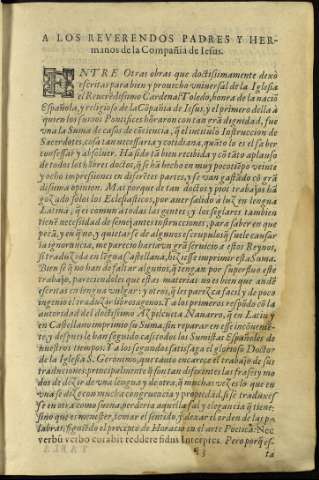 A LOS REVERENDOS PADRES Y HER-
manos de la Compañia de Iesus.
ENTRE Otras obras que doctissimamente dexò
escritas para bien y prouecho vniuersal de la Iglesia
el Reuerēdissimo Cardenal Toledo, honra de la naciō
Española, y religioso de la Cōpañia de Iesus, y el primero della à
quien los sumos Pontifices hōraron con tan grā dignidad, fue
vna la Suma de casos de cōciencia, q̄ el intitulò Instruccion de
Sacerdotes, cosa tan necessaria y cotidiana, quāto lo es el saber
confessar y absoluer. Ha sido tā bien recebida y cō tāto aplauso
de todos los hōbres doctos, q̄ se hā hecho en muy poco tiēpo veinte
y ocho impressiones en diferētes partes, y se van gastādo cō grā
dissima opinion. Mas porque de tan doctos y pios trabajos hā
gozado solos los Eclesiasticos, por auer salido a luz en lengua
Latina; q̄ es comun a todas las gentes, y los seglares tambien
tienē necessidad de semejantes instrucciones, para saber en que
pecā, y en que no, y quitarse de algunos escrupulos q̄ suele causar
la ignorancia, me parecio hariavn grā seruicio a estos Reynos,
si traduzida en lēgua Castellana, hiziesse imprimir esta Suma.
Bien sè q̄ no han de faltar algunos, q̄ tengan por superfluo este
trabajo, pareciendoles que estas materias no es bien que andē
escritas en lengua vulgar: y otros, q̄ les parezca facil y de poco
ingenio el traduzir libros agenos. Y a los primeros respōdo cō la
autoridad del doctissimo Azpilcueta Nauarro, q̄ en Latin y
en Castellano imprimio su Suma, sin reparar en esse incōuenie-
te, y despues le han seguido casi todos los Sumistas Españoles de
nuestros tiempos. Y a los segundos satisfaga el glorioso Doctor
de la Iglesia S. Geronimo, que tanto encarece el trabajo de sus
traduciones: principalmente q̄ son tan diferentes las frasis y mo
dos de dezir de vna lengua y de otra, q̄ muchas vezes lo que en
vna se dize con mucha congruencia y propiedad, si se traduxes
se en otra como suena, perderia aquella sal y elegancia q̄ tiene:
sino que es menester, tomar el sentido, y dexar el orden de las pa
labras, siguiēdo el precepto de Horacio en el arte Poetica: Nec
verbū verbo curabit reddere fidus Interpres. Pero porq̄ es-
ta